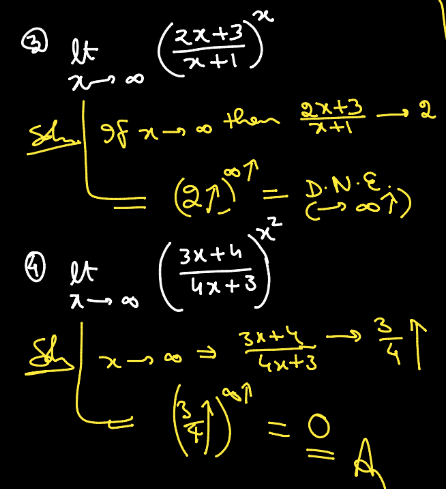 ③ lt x→∞ ((2x+3)/(x+1))^x
Soln If x→∞ then (2x+3)/(x+1) → 2
= (2↑)^∞↑ = D.N.E. (→∞↑)
④ lt x→∞ ((3x+4)/(4x+3))^x²
Soln x→∞ ⇒ (3x+4)/(4x+3) → 3/4↑
= (3/4↑)^∞↑ = 0 A